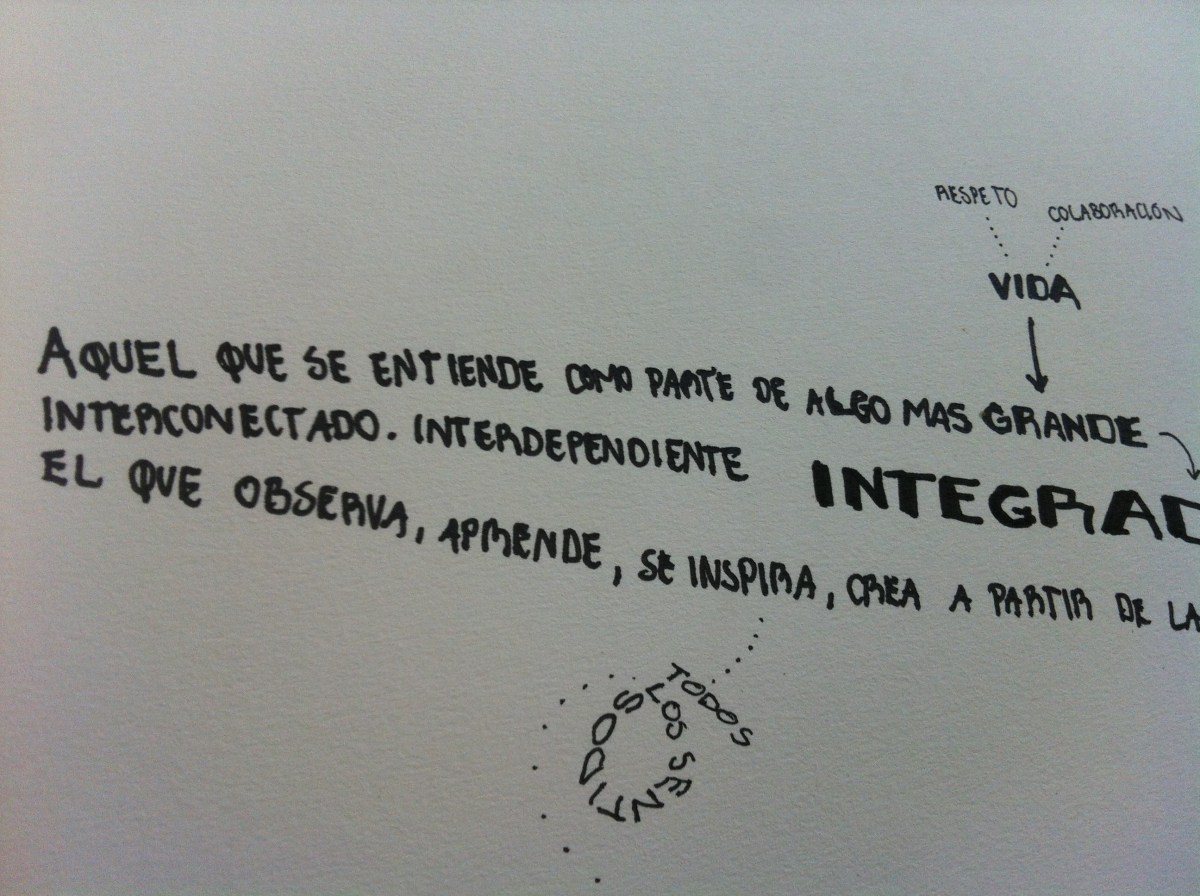 RESPETO
COLABORACIÓN
VIDA
AQUEL QUE SE ENTIENDE COMO PARTE DE ALGO MAS GRANDE
INTERCONECTADO. INTERDEPENDIENTE INTEGRAD
EL QUE OBSERVA, APRENDE, SE INSPIRA, CREA A PARTIR DE LA
TODOS
LOS SENTIDOS